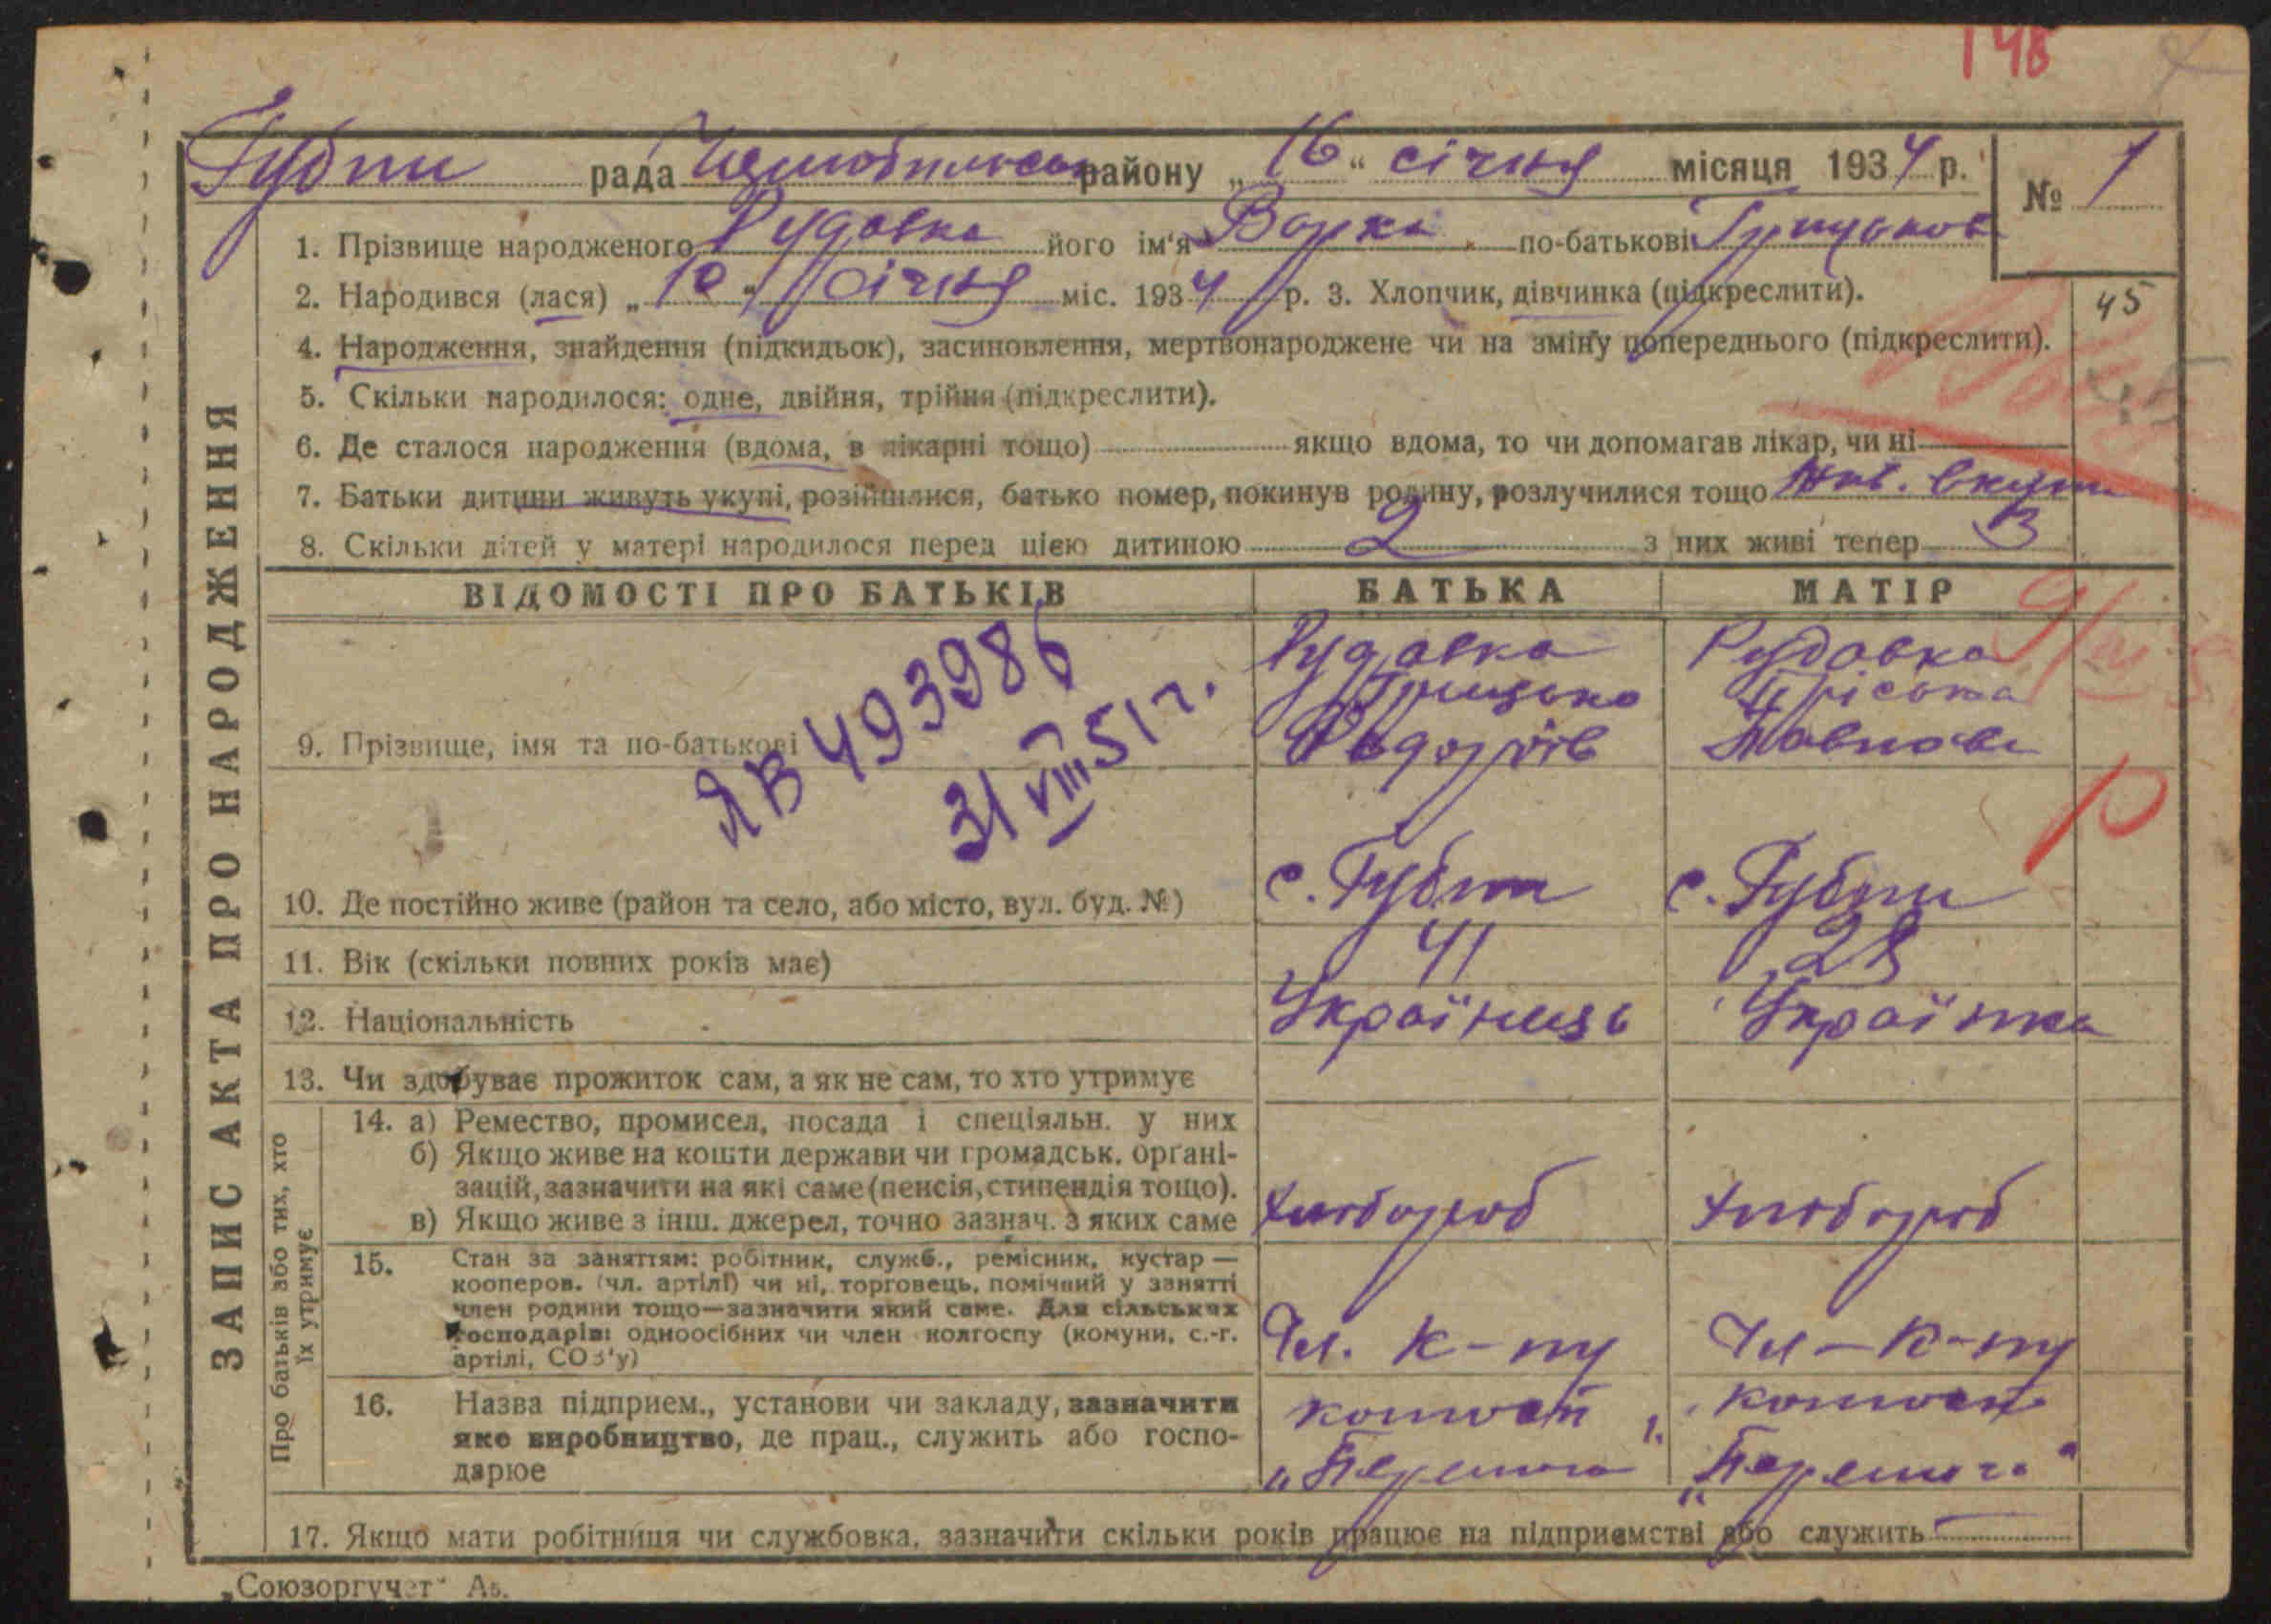 148
Губин рада Чорнобильськ району „16“ січня місяця 1934 р. № 1
1. Прізвище народженого Рудовка його ім'я Варка по-батькові Грицьков
2. Народився (лася) „10“ січня міс. 1934 р. 3. Хлопчик, дівчинка (підкреслити). 45
4. Народження, знайдення (підкидьок), засиновлення, мертвонароджене чи на зміну попереднього (підкреслити).
5. Скільки народилося: одне, двійня, трійня (підкреслити).
6. Де сталося народження (вдома, в лікарні тощо) якщо вдома, то чи допомагав лікар, чи ні
7. Батьки дитини живуть укупі, розійшлися, батько помер, покинув родину, розлучилися тощо жив. вкупи
8. Скільки дітей у матері народилося перед цією дитиною 2 з них живі тепер 3
ВІДОМОСТІ ПРО БАТЬКІВ БАТЬКА МАТІР
Рудовка Рудовка
Грицько Пріська
9. Прізвище, імя та по-батькові Федорів Павлова
ЯВ 493986
31 VIII 51 г.
10. Де постійно живе (район та село, або місто, вул. буд. №) с. Губин с. Губин
11. Вік (скільки повних років має) 41 28
12. Національність Українець Українка
13. Чи здобуває прожиток сам, а як не сам, то хто утримує
14. а) Ремество, промисел, посада і спеціяльн. у них
б) Якщо живе на кошти держави чи громадськ. органі-
зацій, зазначити на які саме (пенсія, стипендія тощо).
в) Якщо живе з інш. джерел, точно зазнач. з яких саме хлібороб хлібороб
15. Стан за заняттям: робітник, служб., ремісник, кустар —
кооперов. (чл. артілі) чи ні, торговець, помічний у занятті
член родини тощо—зазначити який саме. Для сільських
господарів: одноосібних чи член колгоспу (комуни, с.-г.
артілі, СОЗ'у) Чл. к-пу Чл-к-пу
16. Назва підприєм., установи чи закладу, зазначити
яке виробництво, де прац., служить або госпо-
дарює
17. Якщо мати робітниця чи службовка, зазначити скільки років працює на підприємстві або служить
ЗАПИС АКТА ПРО НАРОДЖЕННЯ
Про батьків або тих, хто
їх утримує
„Союзоргучет“